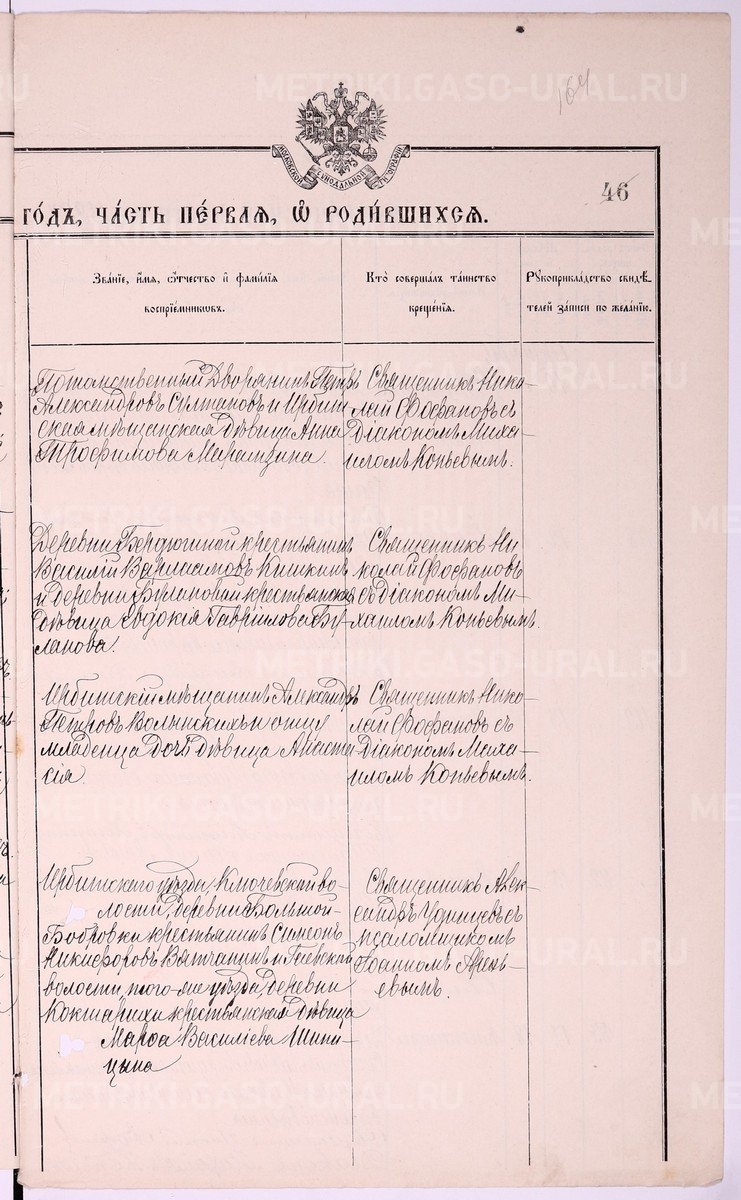 164
МОСКОВСКОЙ СУНОДАЛЬНОЙ ТУПОГРАФІИ
46
ГО́ДЪ, ЧА́СТЬ ПЕ́РВАЯ, Ѡ҆ РОДИ́ВШИХСЯ.
Зва́нїе, и҆́мя, ѻ҆́тчество и҆ фами́лїя
воспрїе́мникѡвъ.
Кто̀ соверша́лъ та́инство
креще́нїя.
Рꙋкоприкла́дство свидѣ́-
телей за́писи по жела́нїю.
Потомственный Дворянинъ Петръ
Александровъ Султановъ и Ирбит
ская мѣщанская дѣвица Анна
Трофимова Марамзина.
Священникъ Нико-
лай Фофановъ съ
Діакономъ Миха-
иломъ Копьевымъ.
Деревни Бердюгиной крестьянинъ
Василій Варлаамовъ Кишкинъ
и деревни Булановой крестьянская
дѣвица Евдокія Гавріилова Бу-
ланова.
Священникъ Ни
колай Фофановъ
съ діакономъ Ми-
хаиломъ Копьевымъ.
Ирбитскій мѣщанинъ Александръ
Петровъ Волынскихъ и отца
младенца дочь дѣвица Анаста
сія
Священникъ Нико-
лай Фофановъ съ
Діакономъ Миха-
иломъ Копьевымъ.
Ирбитскаго уѣзда, Ключевской во-
лости, деревни Большой-
Бобровки крестьянинъ Симеонъ
Никифоровъ Вятчанинъ и Гаевской
волости, того-же уѣзда, деревни
Кокшарихи крестьянская дѣвица
Марѳа Васильева Шипи-
цына
Священникъ Алек-
сандръ Удинцевъ съ
псаломщикомъ
Іоанномъ Арень-
евымъ.
METRIKI.GASO-URAL.RU